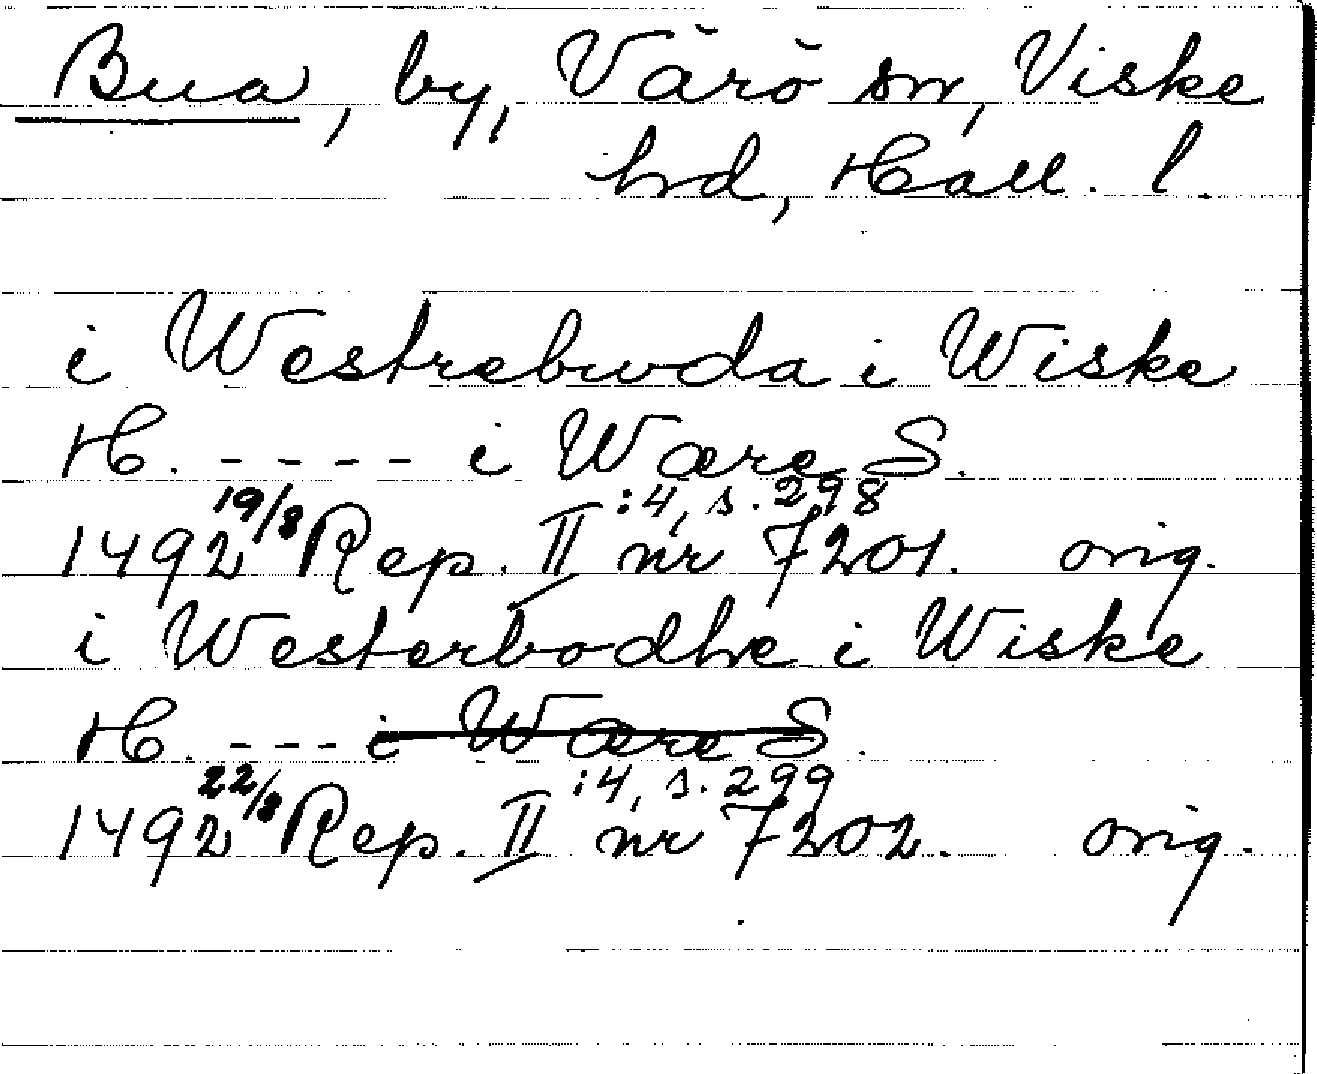 Bua, by, Värö sn, Viske
hd, Hall. l.
i Westrebwda i Wiske
H. ---- i Wære S.
1492 19/8 Rep. II :4, s. 298 nr 7201. orig.
i Westerbodhe i Wiske
H. --- i Wære S.
1492 22/8 Rep. II :4, s. 299 nr 7202. orig.